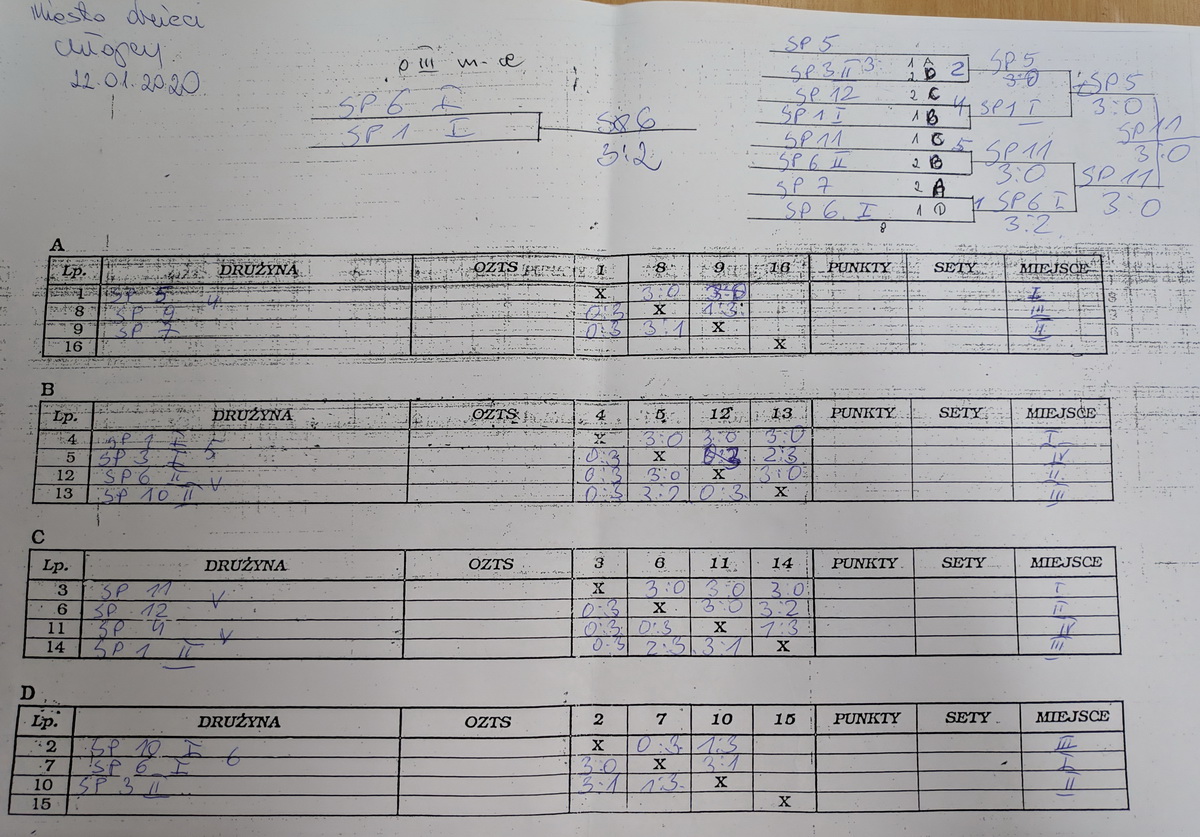 Miasto dzieci
chłopcy
12.01.2020
o III m-ce
SP 6 I
SP 1 I
SP 6
3:2
SP 5 1 A
SP 3 II 3 2 D 2
SP 12 2 C
SP 1 I 1 B 4
SP 11 1 C
SP 6 II 2 B 5
SP 7 2 A
SP 6 I 1 D 1
8
SP 5
3:0
SP 1 I
SP 11
3:0
SP 6 I
3:2
SP 5
3:0
SP 11
3:0
SP 11
3:0
A
Lp. DRUŻYNA OZTS 1 8 9 16 PUNKTY SETY MIEJSCE
1 SP 5 4 X 3:0 3:0 I
8 SP 9 0:3 X 1:3 III
9 SP 7 0:3 3:1 X II
16 X
B
Lp. DRUŻYNA OZTS 4 5 12 13 PUNKTY SETY MIEJSCE
4 SP 1 I 5 X 3:0 3:0 3:0 I
5 SP 3 I 3 0:3 X 0:3 2:3 IV
12 SP 6 II V 0:3 3:0 X 3:0 II
13 SP 10 II 0:3 3:2 0:3 X III
C
Lp. DRUŻYNA OZTS 3 6 11 14 PUNKTY SETY MIEJSCE
3 SP 11 V X 3:0 3:0 3:0 I
6 SP 12 0:3 X 3:0 3:2 II
11 SP 4 V 0:3 0:3 X 1:3 IV
14 SP 1 II 0:3 2:3 3:1 X III
D
Lp. DRUŻYNA OZTS 2 7 10 15 PUNKTY SETY MIEJSCE
2 SP 10 I 6 X 0:3 1:3 III
7 SP 6 I 3:0 X 3:1 I
10 SP 3 II 3:1 1:3 X II
15 X